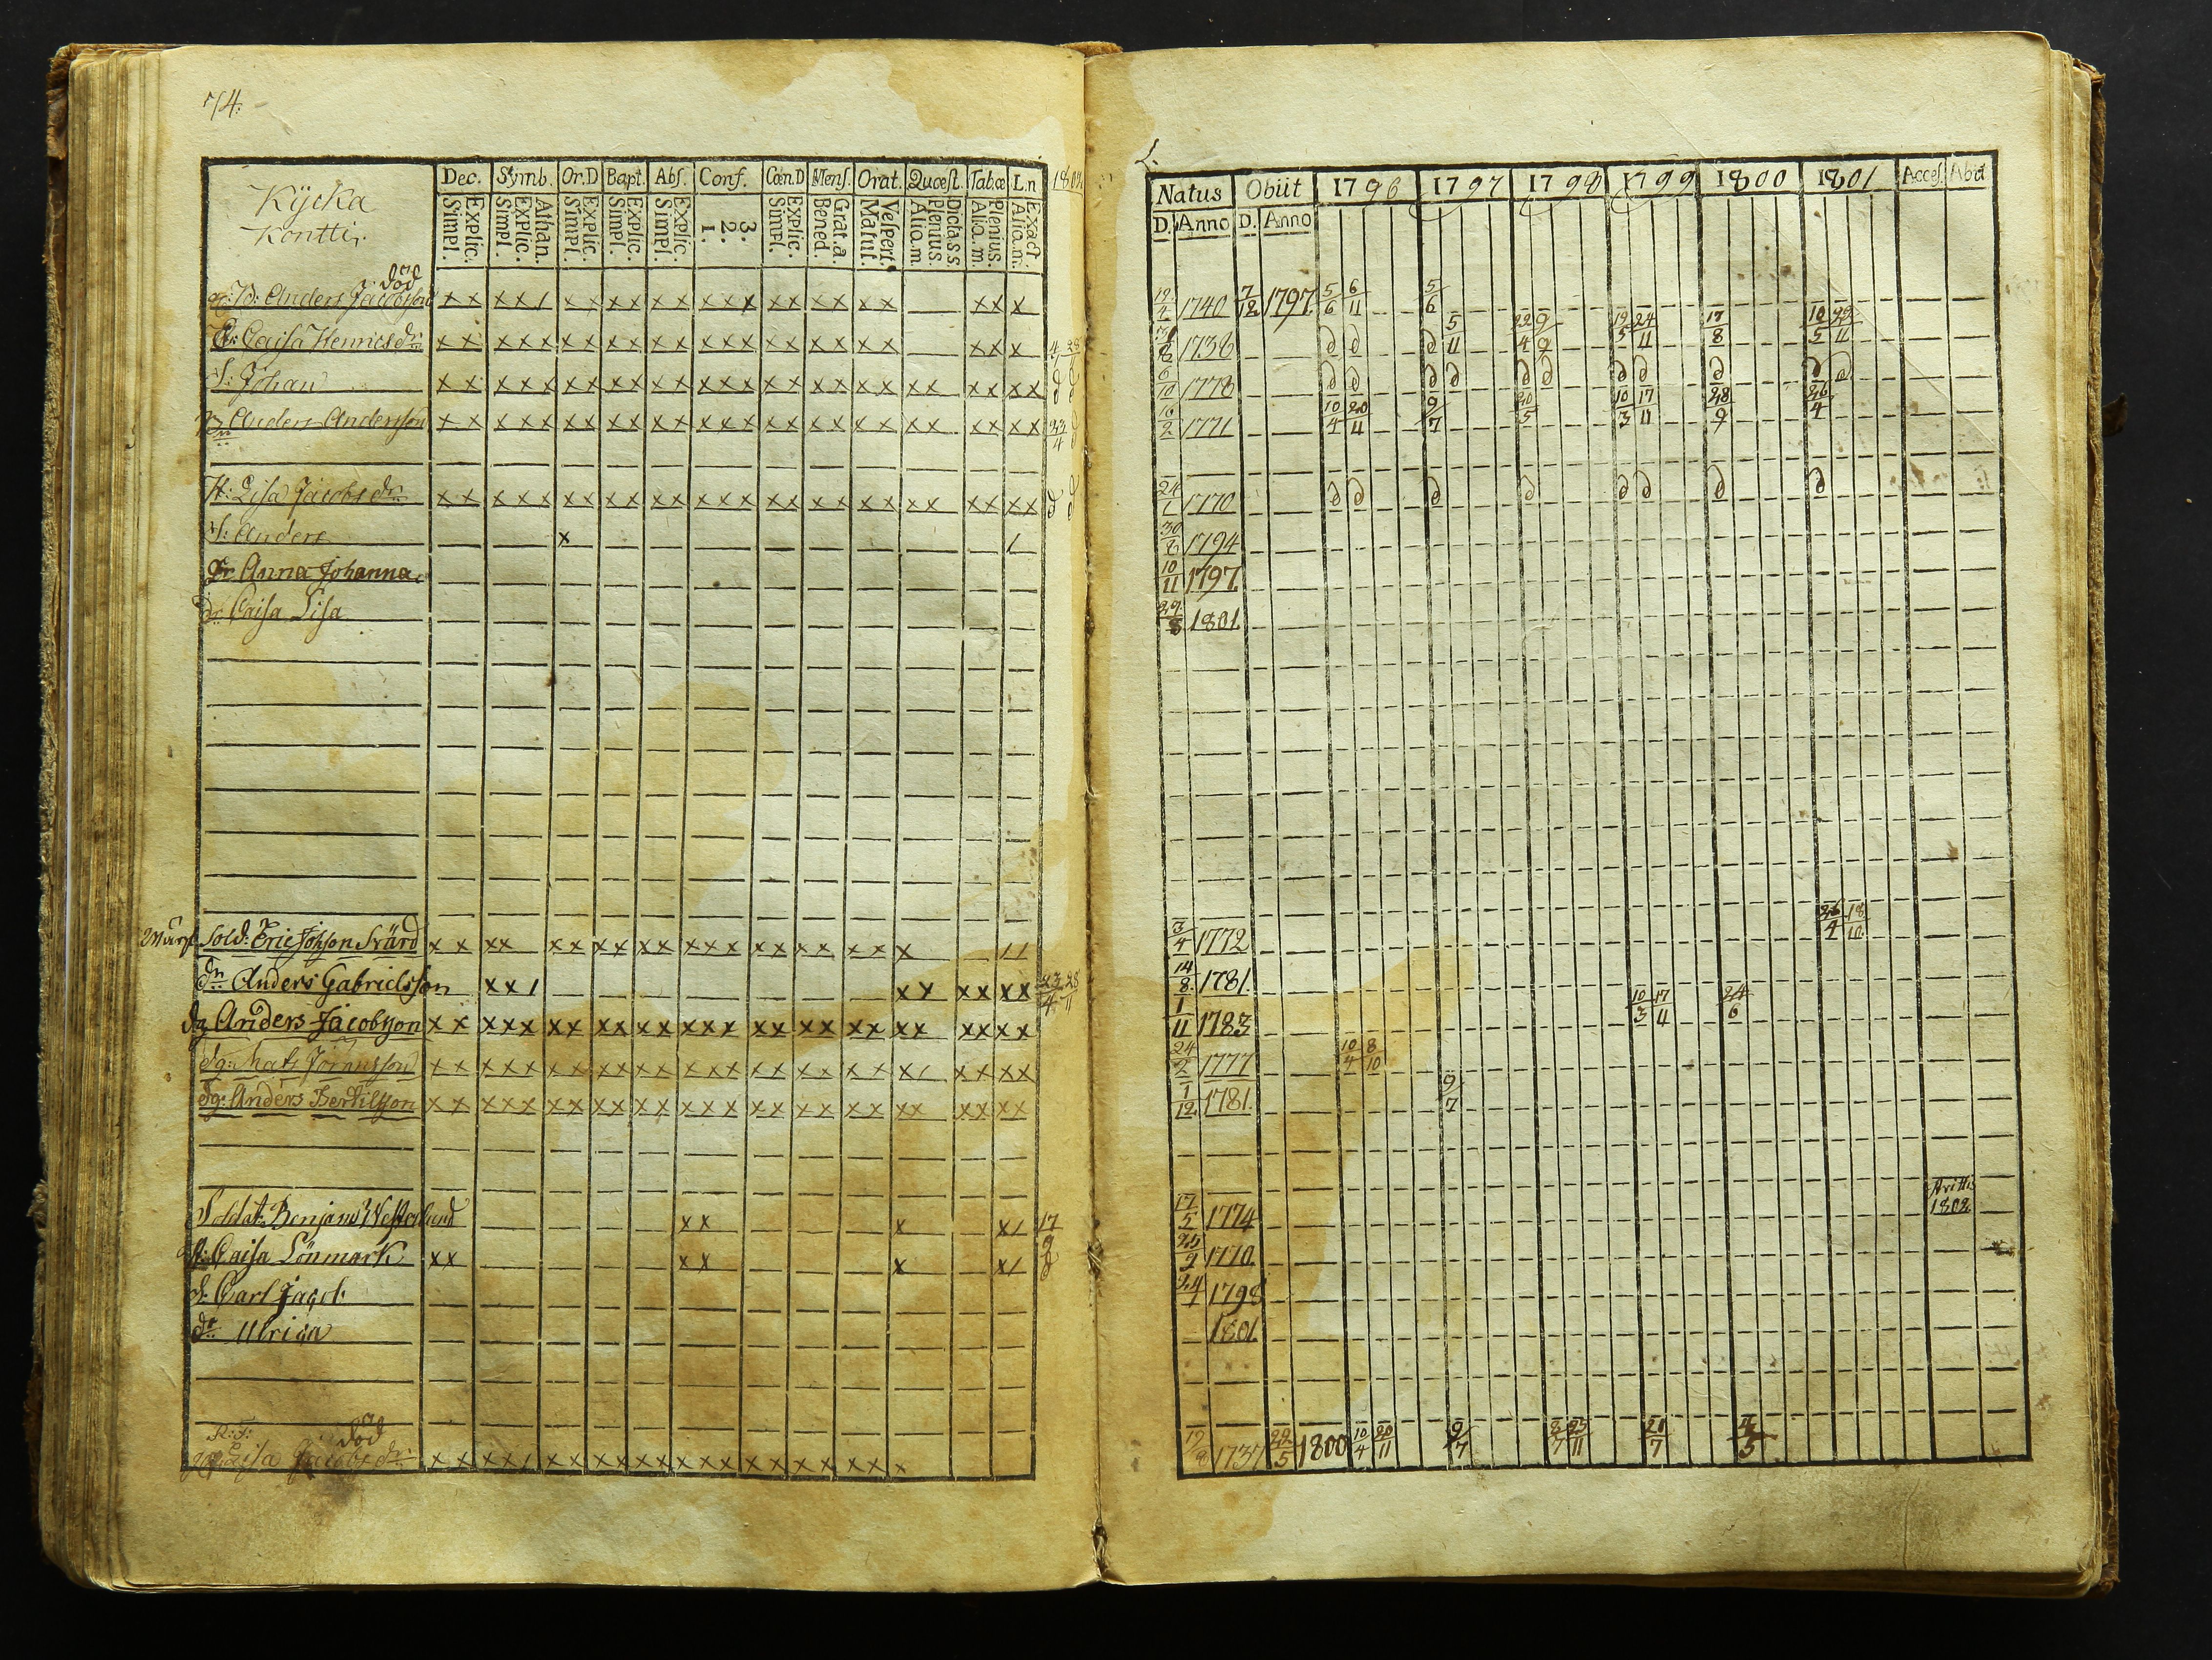 74.
Kÿcka
Kontti.
Dec. Symb. Or.D Bapt. Abs. Conf. Cœn.D Mens. Orat. Quæst. Tab.œ L.n 1802
Explic. Simpl. Athan. Explic. Simpl. Explic. Simpl. Explic. Simpl. Explic. Simpl. 3. 2. 1. Explic. Simpl. Grat.a Bened. Vespert. Matut. Dicta.s.s. Plenius. Alio.m Plenius. Alia.m. Exact. Alio.m.
död
Anders Jacobsson x x x x / x x x x x x x x x x x x x x x x x x x
Caisa Henricsdr x x x x x x x x x x x x x x x x x x x x x x x
S: Johan x x x x x x x x x x x x x x x x x x x x x x x x x x
Anders Andersson x x x x x x x x x x x x x x x x x x x x x x x x x x 23/4
H: Lisa Jacobsdr x x x x x x x x x x x x x x x x x x x x x x x x x x
S: Anders x /
dr Anna Johanna
dr Caisa Lisa
Sold: Eric Johsson Svärd x x x x x x x x x x x x x x x x x x x / /
dn Anders Gabrielsson x x / x x x x x x 23/4 28/11
Anders Jacobsson x x x x x x x x x x x x x x x x x x x x x x x x x x
dg: Mats Göransson x x x x x x x x x x x x x x x x x x x x x / x x x x
dg: Anders Bertilsson x x x x x x x x x x x x x x x x x x x x x x x x x x
Soldat: Benjam Westerlund x x x x / 17/9
H: Caisa Lönmark x x x x x x /
S. Carl Jacob
dr Ulrica
död
Lisa Jacobsdr x x x x / x x x x x x x x x x x x x x x x
Natus Obiit 1796 1797 1798 1799 1800 1801 Acces. Abiit
D. Anno D. Anno
19/4 1740 7/12 1797. 5/6 6/11 5/6
1738 5/11 22/4 19/5 24/11 17/8 10/5 22/11
6/10 1778
16/2 1771 10/4 20/11 9/7 20/5 10/3 17/11 28/9 26/4
24/1 1770
30/8 1794
10/11 1797.
1801.
3/4 1772 26/4 18/10
14/8 1781.
1/11 1783 10/3 17/11 24/6
24/2 1777 10/4 8/10
1/12 1781. 9/7
17/5 1774 1802
25/9 1770.
24/1 1798
1801.
19/8 1737 22/5 1800 10/4 20/11 9/7 8/7 25/11 21/7 4/5